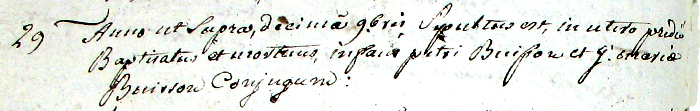 29 Anno ut supra, decimâ 9bris Sepultus est, in utero pridiè
Baptisatus et mortuus, infans petri Buisson et G. mariæ
Buisson Conjugum: